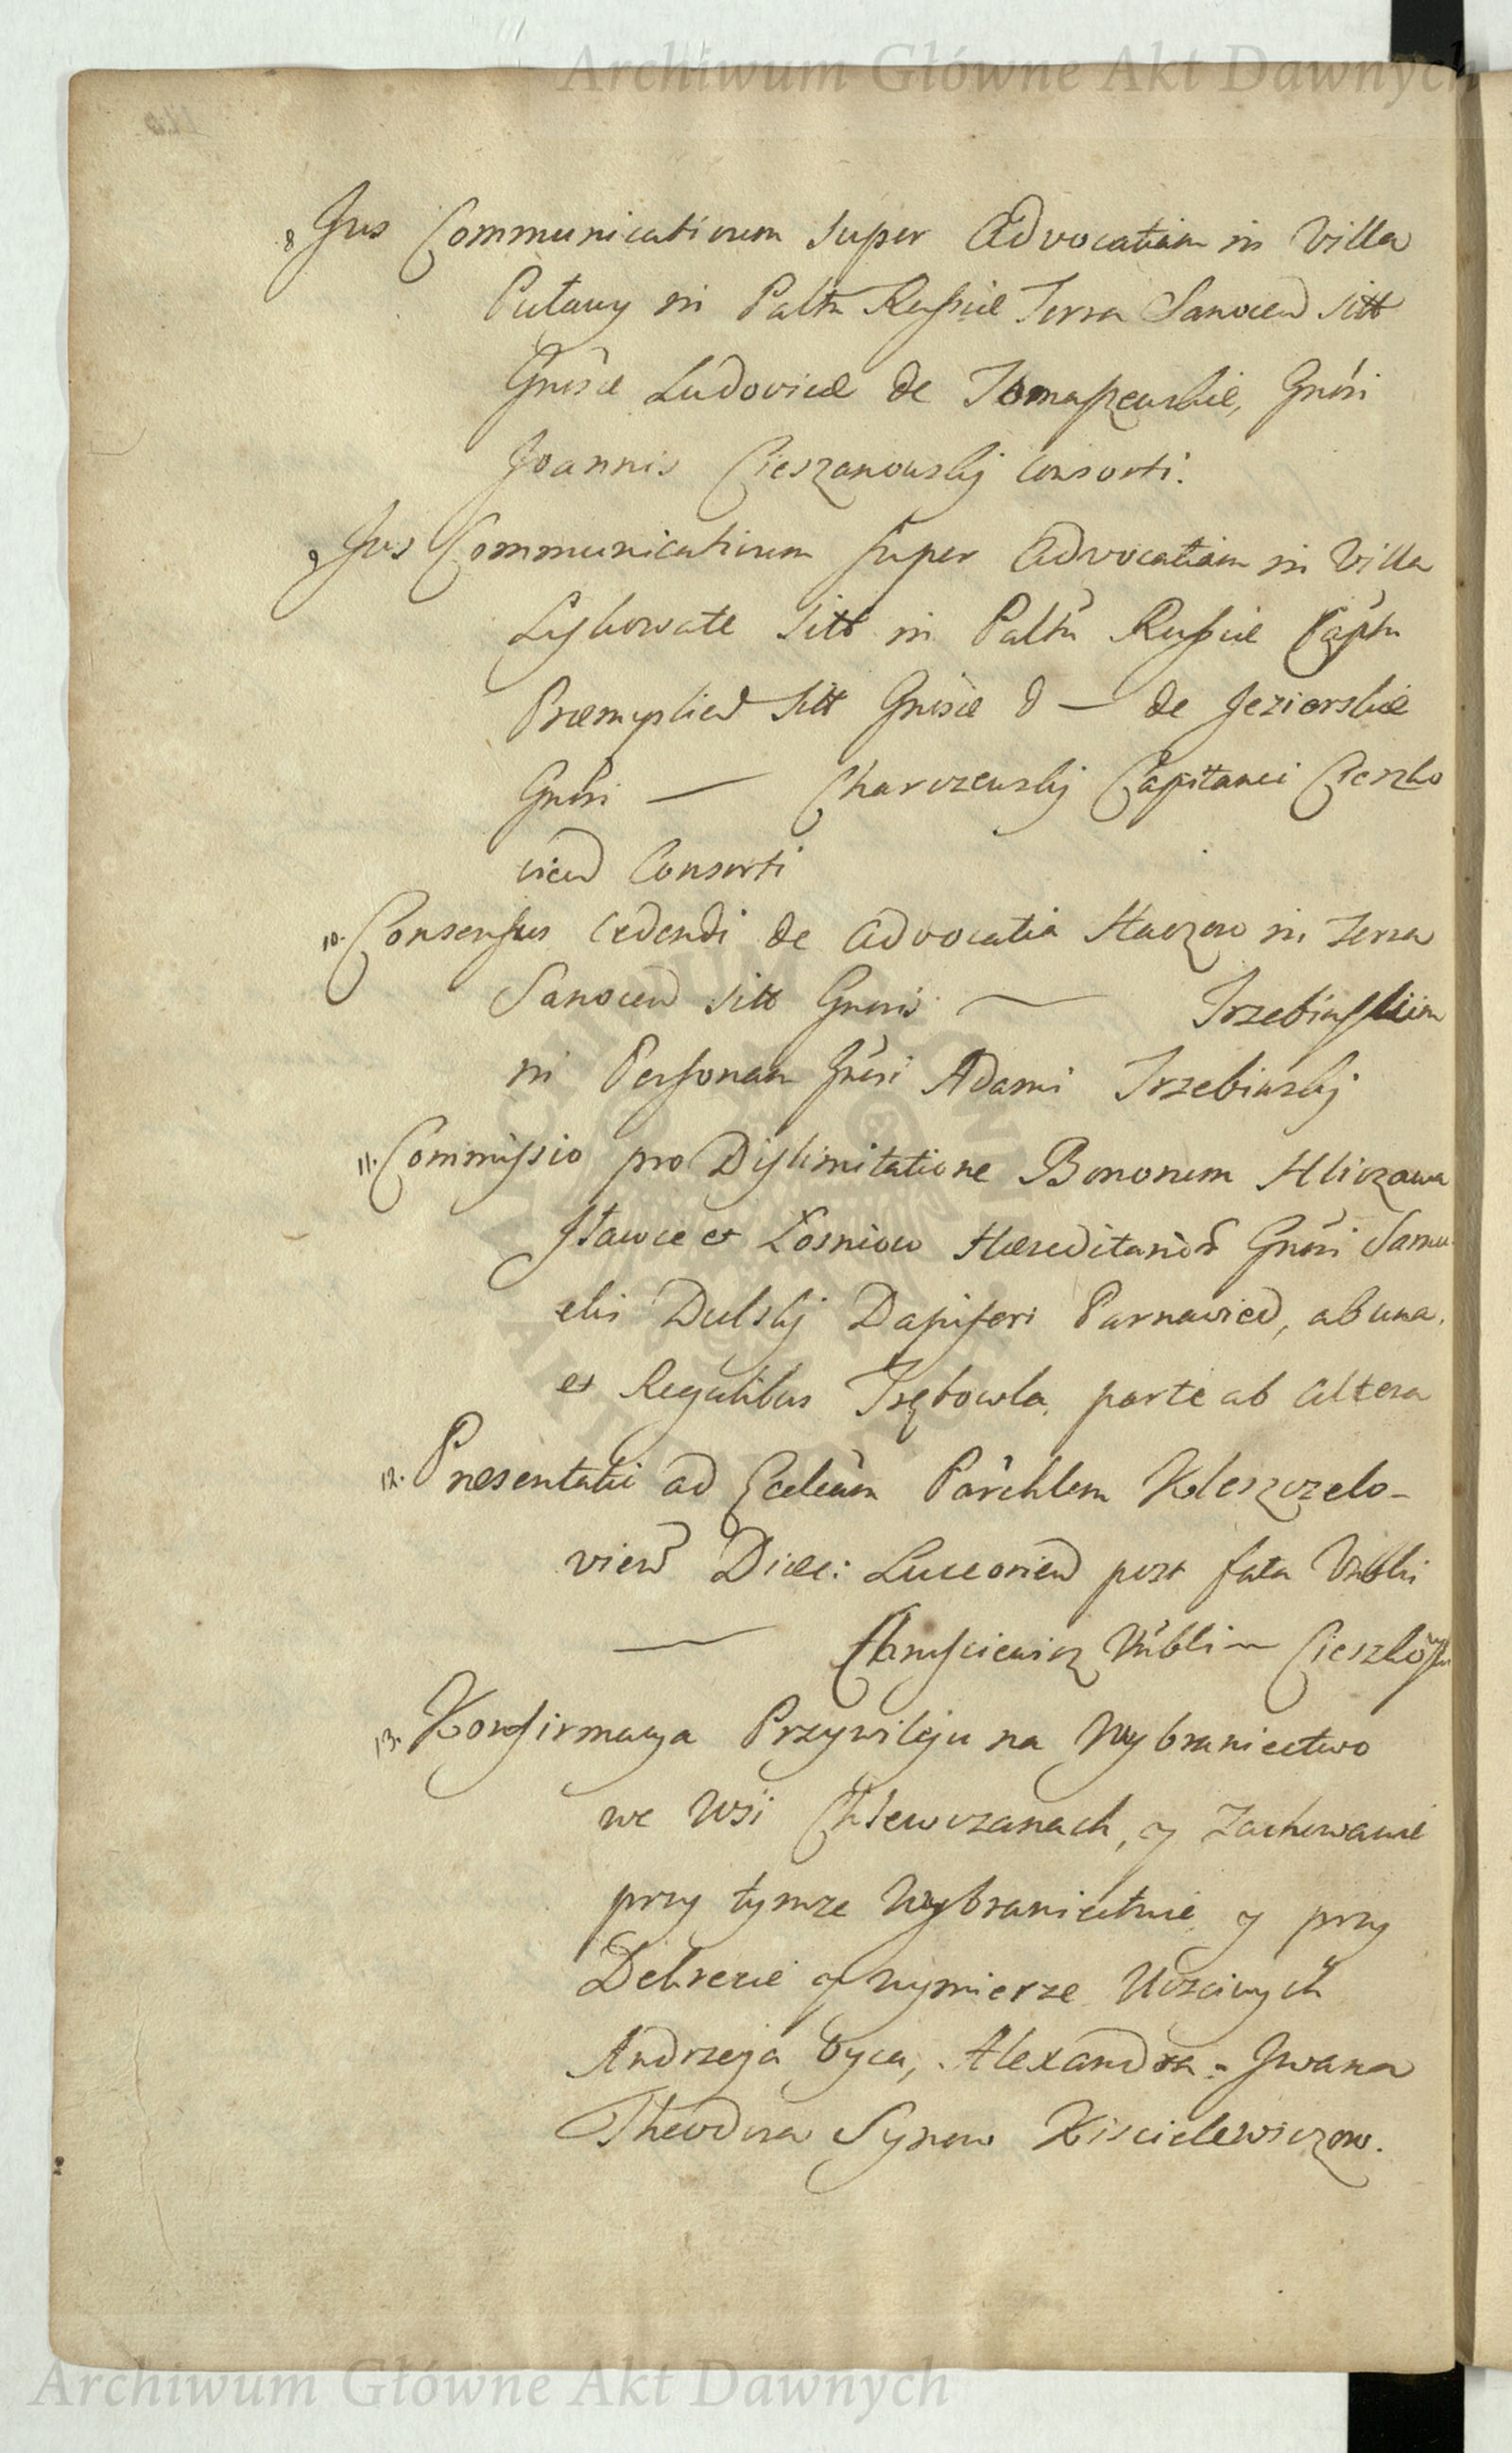 Archiwum Główne Akt Dawnych
8 Jus Communicativum super Advocatiam in Villa
Putawy in Palttu Russiæ Terra Sanocen sitt
Gnosæ Ludovicæ de Tomaszewskie, Gnosi
Joannis Cieszanowskij Consorti.
9 Jus Communicativum super Advocatiam in Villa
Lyskowate sitt in Palttu Russiæ Captu
Præmyslien sitt Gnosæ d — de Jezierskie
Gnosi — Charczewskij Capitanei Cieszko
vicen Consorti
10. Consensus cedendi de Advocatia Haczow in Terra
Sanocen sitt Gnosis — Trzebinskiim
in Personam Gnosi Adami Trzebinskij
11. Commissio pro Dislimitatione Bonorum Hliczowa
Jławce et Łosniow Hæreditarior Gnosi Samu
elis Dulskij Dapiferi Parnavien, ab una,
et Regalibus Trębowla, parte ab altera
12. Præsentatii ad Eccleām Parchlem Kleszczelo-
vien Diæc: Luceorien post fata Vnblis
— Vnblis — Cieszko
13. Konfirmacya Przywileju na Wybraniectwo
we Wsi Chlewczanach, y Zachowanie
przy tymze Wybraniectwie y przy
Dekrecie y wymierze Uczciwych
Andrzeja Oyca, Alexandra = Jwana
Theodora Synow Kiscielewiczow.
Archiwum Główne Akt Dawnych